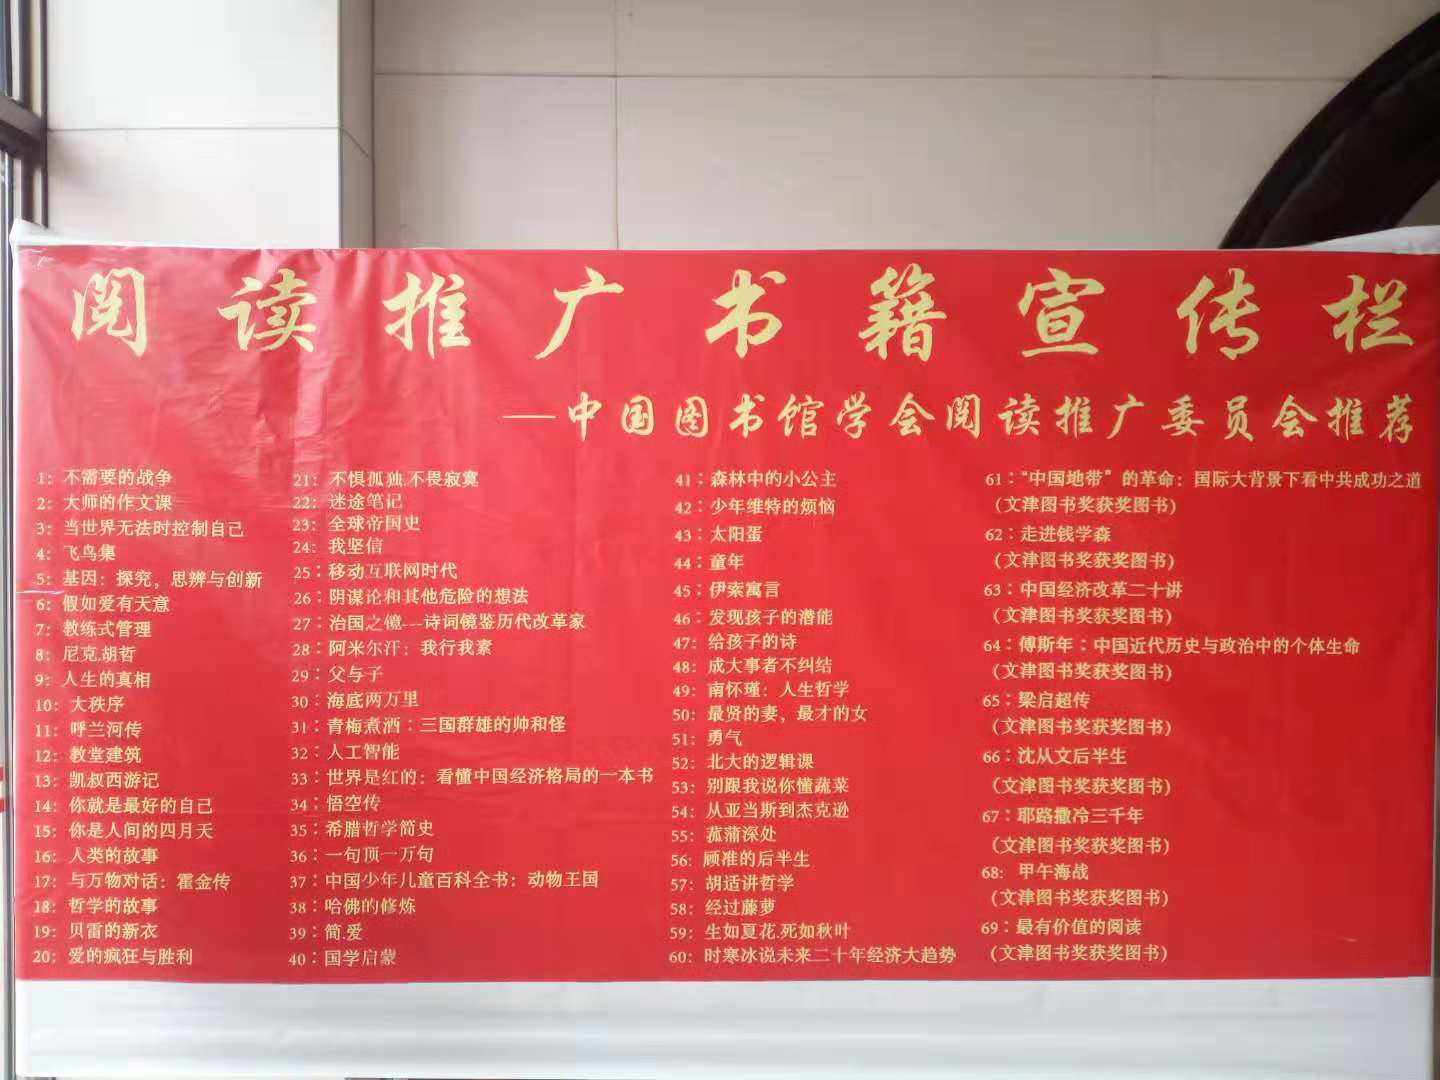 阅读推广书籍宣传栏
—中国图书馆学会阅读推广委员会推荐
1：不需要的战争
2：大师的作文课
3：当世界无法时控制自己
4：飞鸟集
5：基因：探究，思辨与创新
6：假如爱有天意
7：教练式管理
8：尼克.胡哲
9：人生的真相
10：大秩序
11：呼兰河传
12：教堂建筑
13：凯叔西游记
14：你就是最好的自己
15：你是人间的四月天
16：人类的故事
17：与万物对话：霍金传
18：哲学的故事
19：贝雷的新衣
20：爱的疯狂与胜利
21：不惧孤独.不畏寂寞
22：迷途笔记
23：全球帝国史
24：我坚信
25：移动互联网时代
26：阴谋论和其他危险的想法
27：治国之镜---诗词镜鉴历代改革家
28：阿米尔汗：我行我素
29：父与子
30：海底两万里
31：青梅煮酒：三国群雄的帅和怪
32：人工智能
33：世界是红的：看懂中国经济格局的一本书
34：悟空传
35：希腊哲学简史
36：一句顶一万句
37：中国少年儿童百科全书：动物王国
38：哈佛的修炼
39：简.爱
40：国学启蒙
41：森林中的小公主
42：少年维特的烦恼
43：太阳蛋
44：童年
45：伊索寓言
46：发现孩子的潜能
47：给孩子的诗
48：成大事者不纠结
49：南怀瑾：人生哲学
50：最贤的妻，最才的女
51：勇气
52：北大的逻辑课
53：别跟我说你懂蔬菜
54：从亚当斯到杰克逊
55：菰蒲深处
56：顾准的后半生
57：胡适讲哲学
58：经过藤萝
59：生如夏花.死如秋叶
60：时寒冰说未来二十年经济大趋势
61：“中国地带”的革命：国际大背景下看中共成功之道
（文津图书奖获奖图书）
62：走进钱学森
（文津图书奖获奖图书）
63：中国经济改革二十讲
（文津图书奖获奖图书）
64：傅斯年：中国近代历史与政治中的个体生命
（文津图书奖获奖图书）
65：梁启超传
（文津图书奖获奖图书）
66：沈从文后半生
（文津图书奖获奖图书）
67：耶路撒冷三千年
（文津图书奖获奖图书）
68：甲午海战
（文津图书奖获奖图书）
69：最有价值的阅读
（文津图书奖获奖图书）